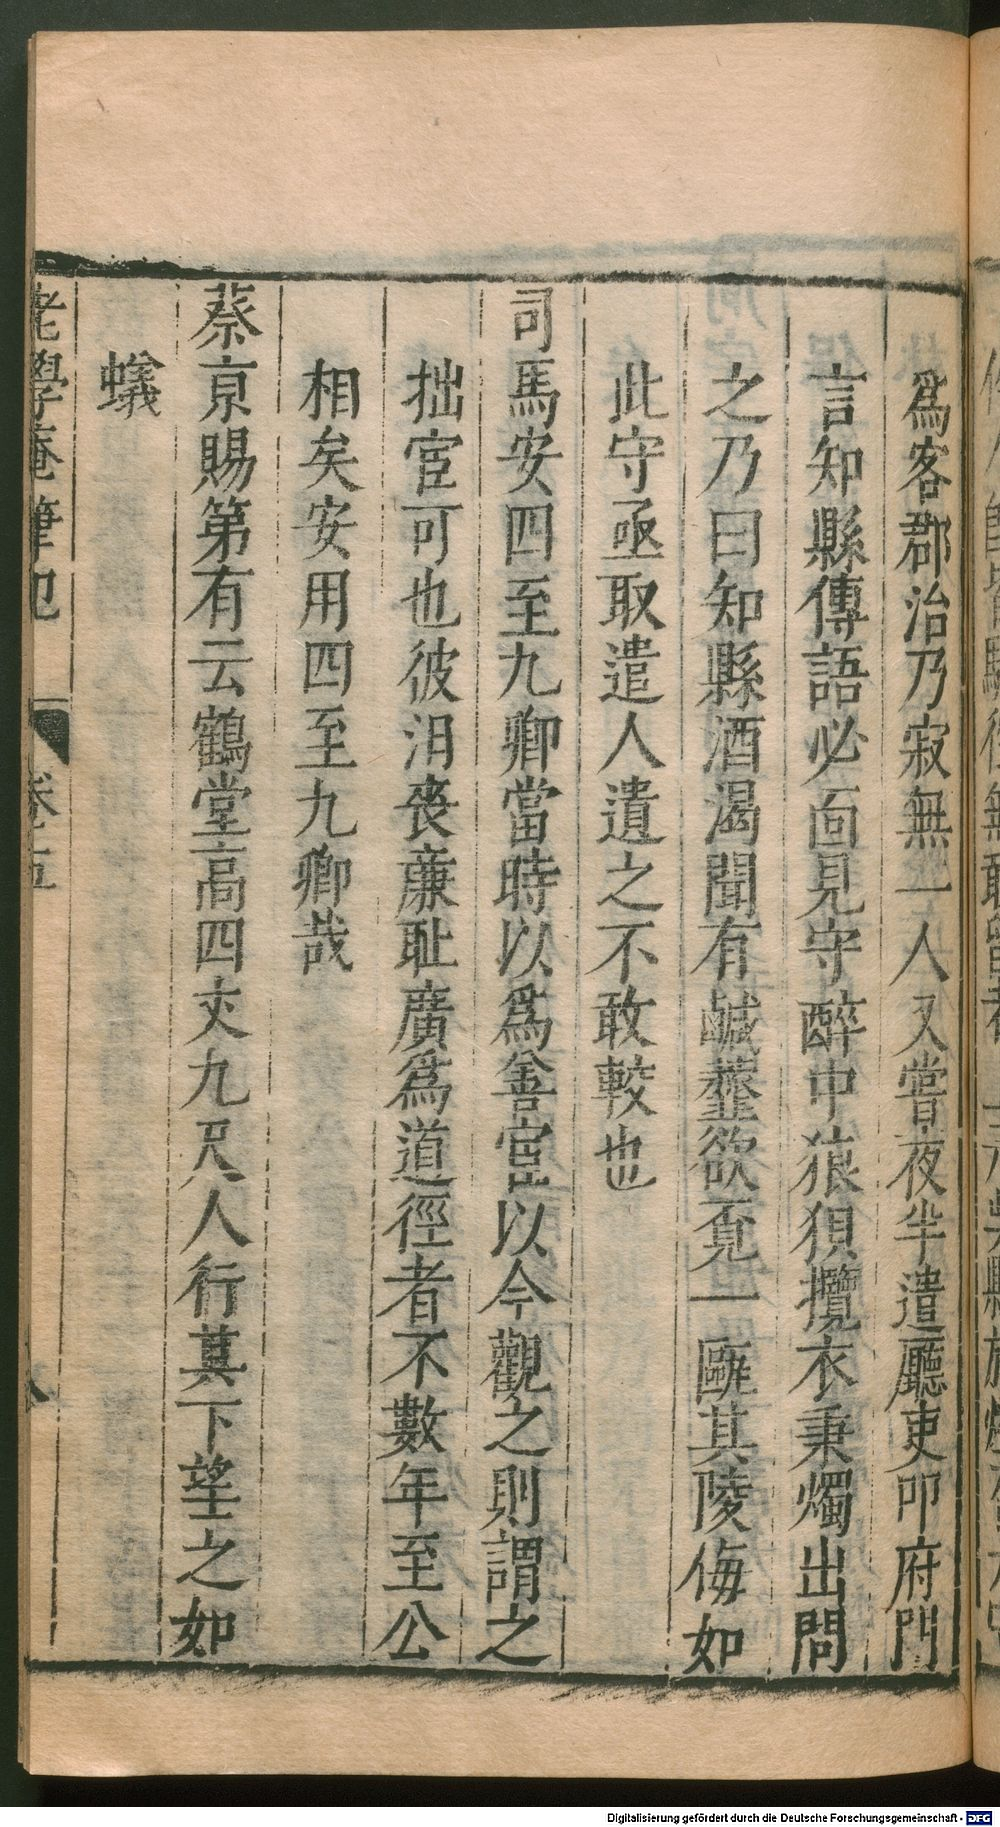 爲客郡治乃寂無一人又嘗夜半遣廳吏叩府門
言知縣傳語必面見守醉中狼狽攬衣秉燭出問
之乃曰知縣酒渴聞有鹹虀欲覓一甌其陵侮如
此守亟取遣人遺之不敢較也
司馬安四至九卿當時以爲善宦以今觀之則謂之
拙宦可也彼汨喪廉耻廣爲道徑者不數年至公
相矣安用四至九卿哉
蔡京賜第有云鶴堂高四丈九尺人行其下望之如
蟻
老學庵筆記 卷五
Digitalisierung gefördert durch die Deutsche Forschungsgemeinschaft - DFG